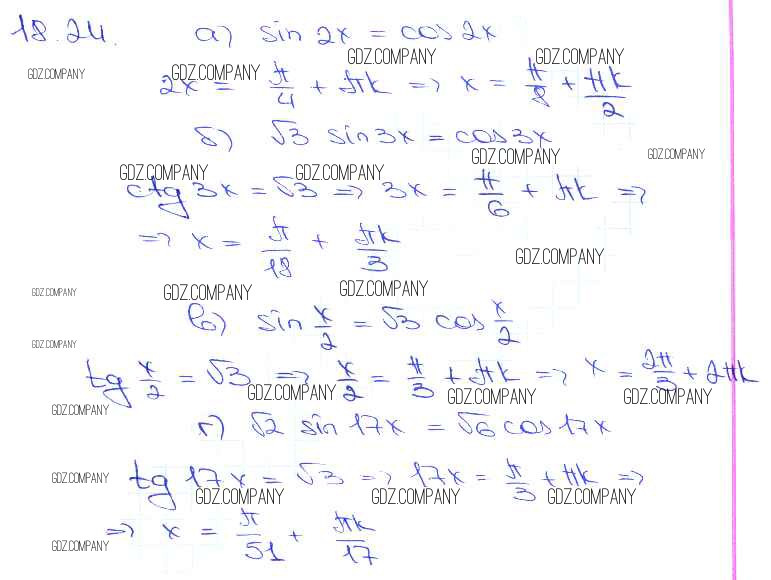 18.24. а) sin 2x = cos 2x
GDZ.COMPANY GDZ.COMPANY
GDZ.COMPANY GDZ.COMPANY
2x = π/4 + πk => x = π/8 + πk/2
б) √3 sin 3x = cos 3x
GDZ.COMPANY GDZ.COMPANY
GDZ.COMPANY GDZ.COMPANY
ctg 3x = √3 => 3x = π/6 + πk =>
=> x = π/18 + πk/3
GDZ.COMPANY
GDZ.COMPANY GDZ.COMPANY GDZ.COMPANY
в) sin x/2 = √3 cos x/2
GDZ.COMPANY
tg x/2 = √3 => x/2 = π/3 + πk => x = 2π/3 + 2πk
GDZ.COMPANY GDZ.COMPANY GDZ.COMPANY
GDZ.COMPANY
г) √2 sin 17x = √6 cos 17x
tg 17x = √3 => 17x = π/3 + πk =>
GDZ.COMPANY
GDZ.COMPANY GDZ.COMPANY GDZ.COMPANY
=> x = π/51 + πk/17
GDZ.COMPANY